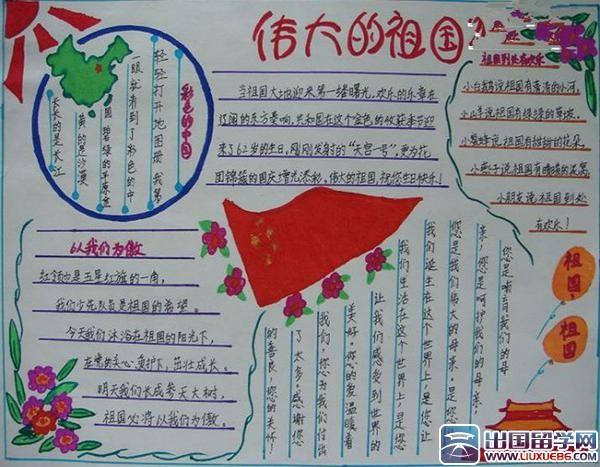 伟大的祖国
彩色的中国
轻轻打开地图册，我第
一眼就看到了彩色的中
国。碧绿的是平原，金
黄的是沙漠，
长长的是长江
当祖国大地迎来第一缕曙光，欢乐的乐章在
辽阔的东方奏响，共和国在这个金色的收获季节迎
来了62岁的生日，刚刚发射的“天宫一号”，更为花
团锦簇的国庆增光添彩。伟大的祖国，祝您生日快乐！
祖国到处有欢乐
小白鹅说祖国有清清的小河，
小山羊说祖国有绿绿的草坡，
小蜜蜂说祖国有甜甜的花朵，
小燕子说祖国有暖暖的窝窝，
小朋友说祖国到处
有欢乐！
以我们为傲
红领巾是五星红旗的一角，
我们少先队员是祖国的希望。
今天我们沐浴在祖国的阳光下，
在党的关心、爱护下，茁壮成长。
明天我们长成参天大树，
祖国必将以我们为傲。
您是哺育我们的母
亲，您是呵护我们的母亲，
您是我们伟大的母亲，是您让
我们诞生在这个世界上，是您让
我们生活在这个世界上，是您
让我们感受到世界的
美好。你的爱温暖着
我们，你为我们付出
了太多。感谢您
的善良，您的关怀！
祖国，
祖国
出国留学网
WWW.LIUXUE86.COM